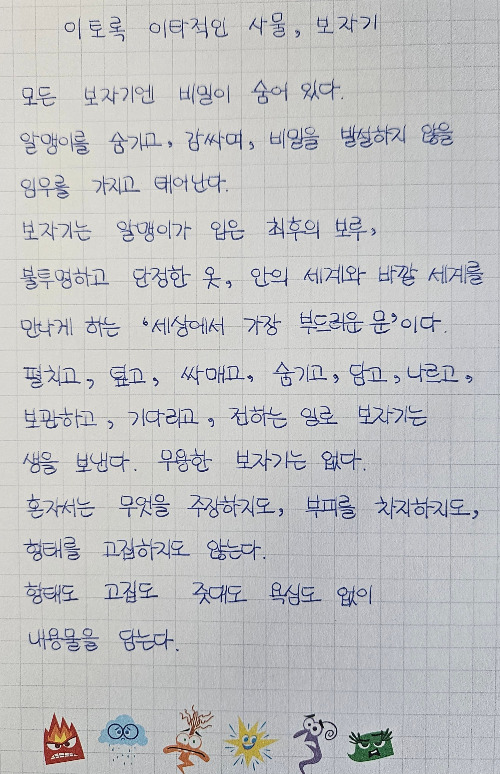 이토록 이타적인 사물, 보자기
모든 보자기엔 비밀이 숨어 있다.
알맹이를 숨기고, 감싸며, 비밀을 발설하지 않을
임무를 가지고 태어난다.
보자기는 알맹이가 입은 최후의 보루,
불투명하고 단정한 옷, 안의 세계와 바깥 세계를
만나게 하는 '세상에서 가장 부드러운 문'이다.
펼치고, 덮고, 싸매고, 숨기고, 담고, 나르고,
보관하고, 기다리고, 전하는 일로 보자기는
생을 보낸다. 무용한 보자기는 없다.
혼자서는 무엇을 주장하지도, 부피를 차지하지도,
형태를 고집하지도 않는다.
형태도 고집도 줏대도 욕심도 없이
내용물을 담는다.